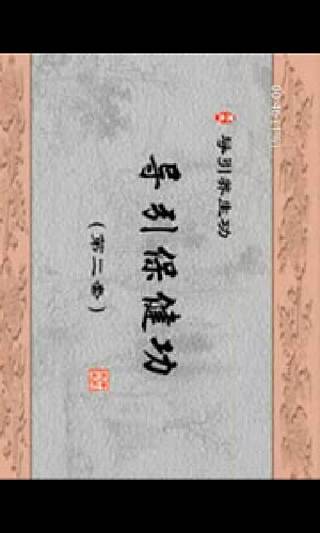 导引养生功
导引保健功
（第二套）